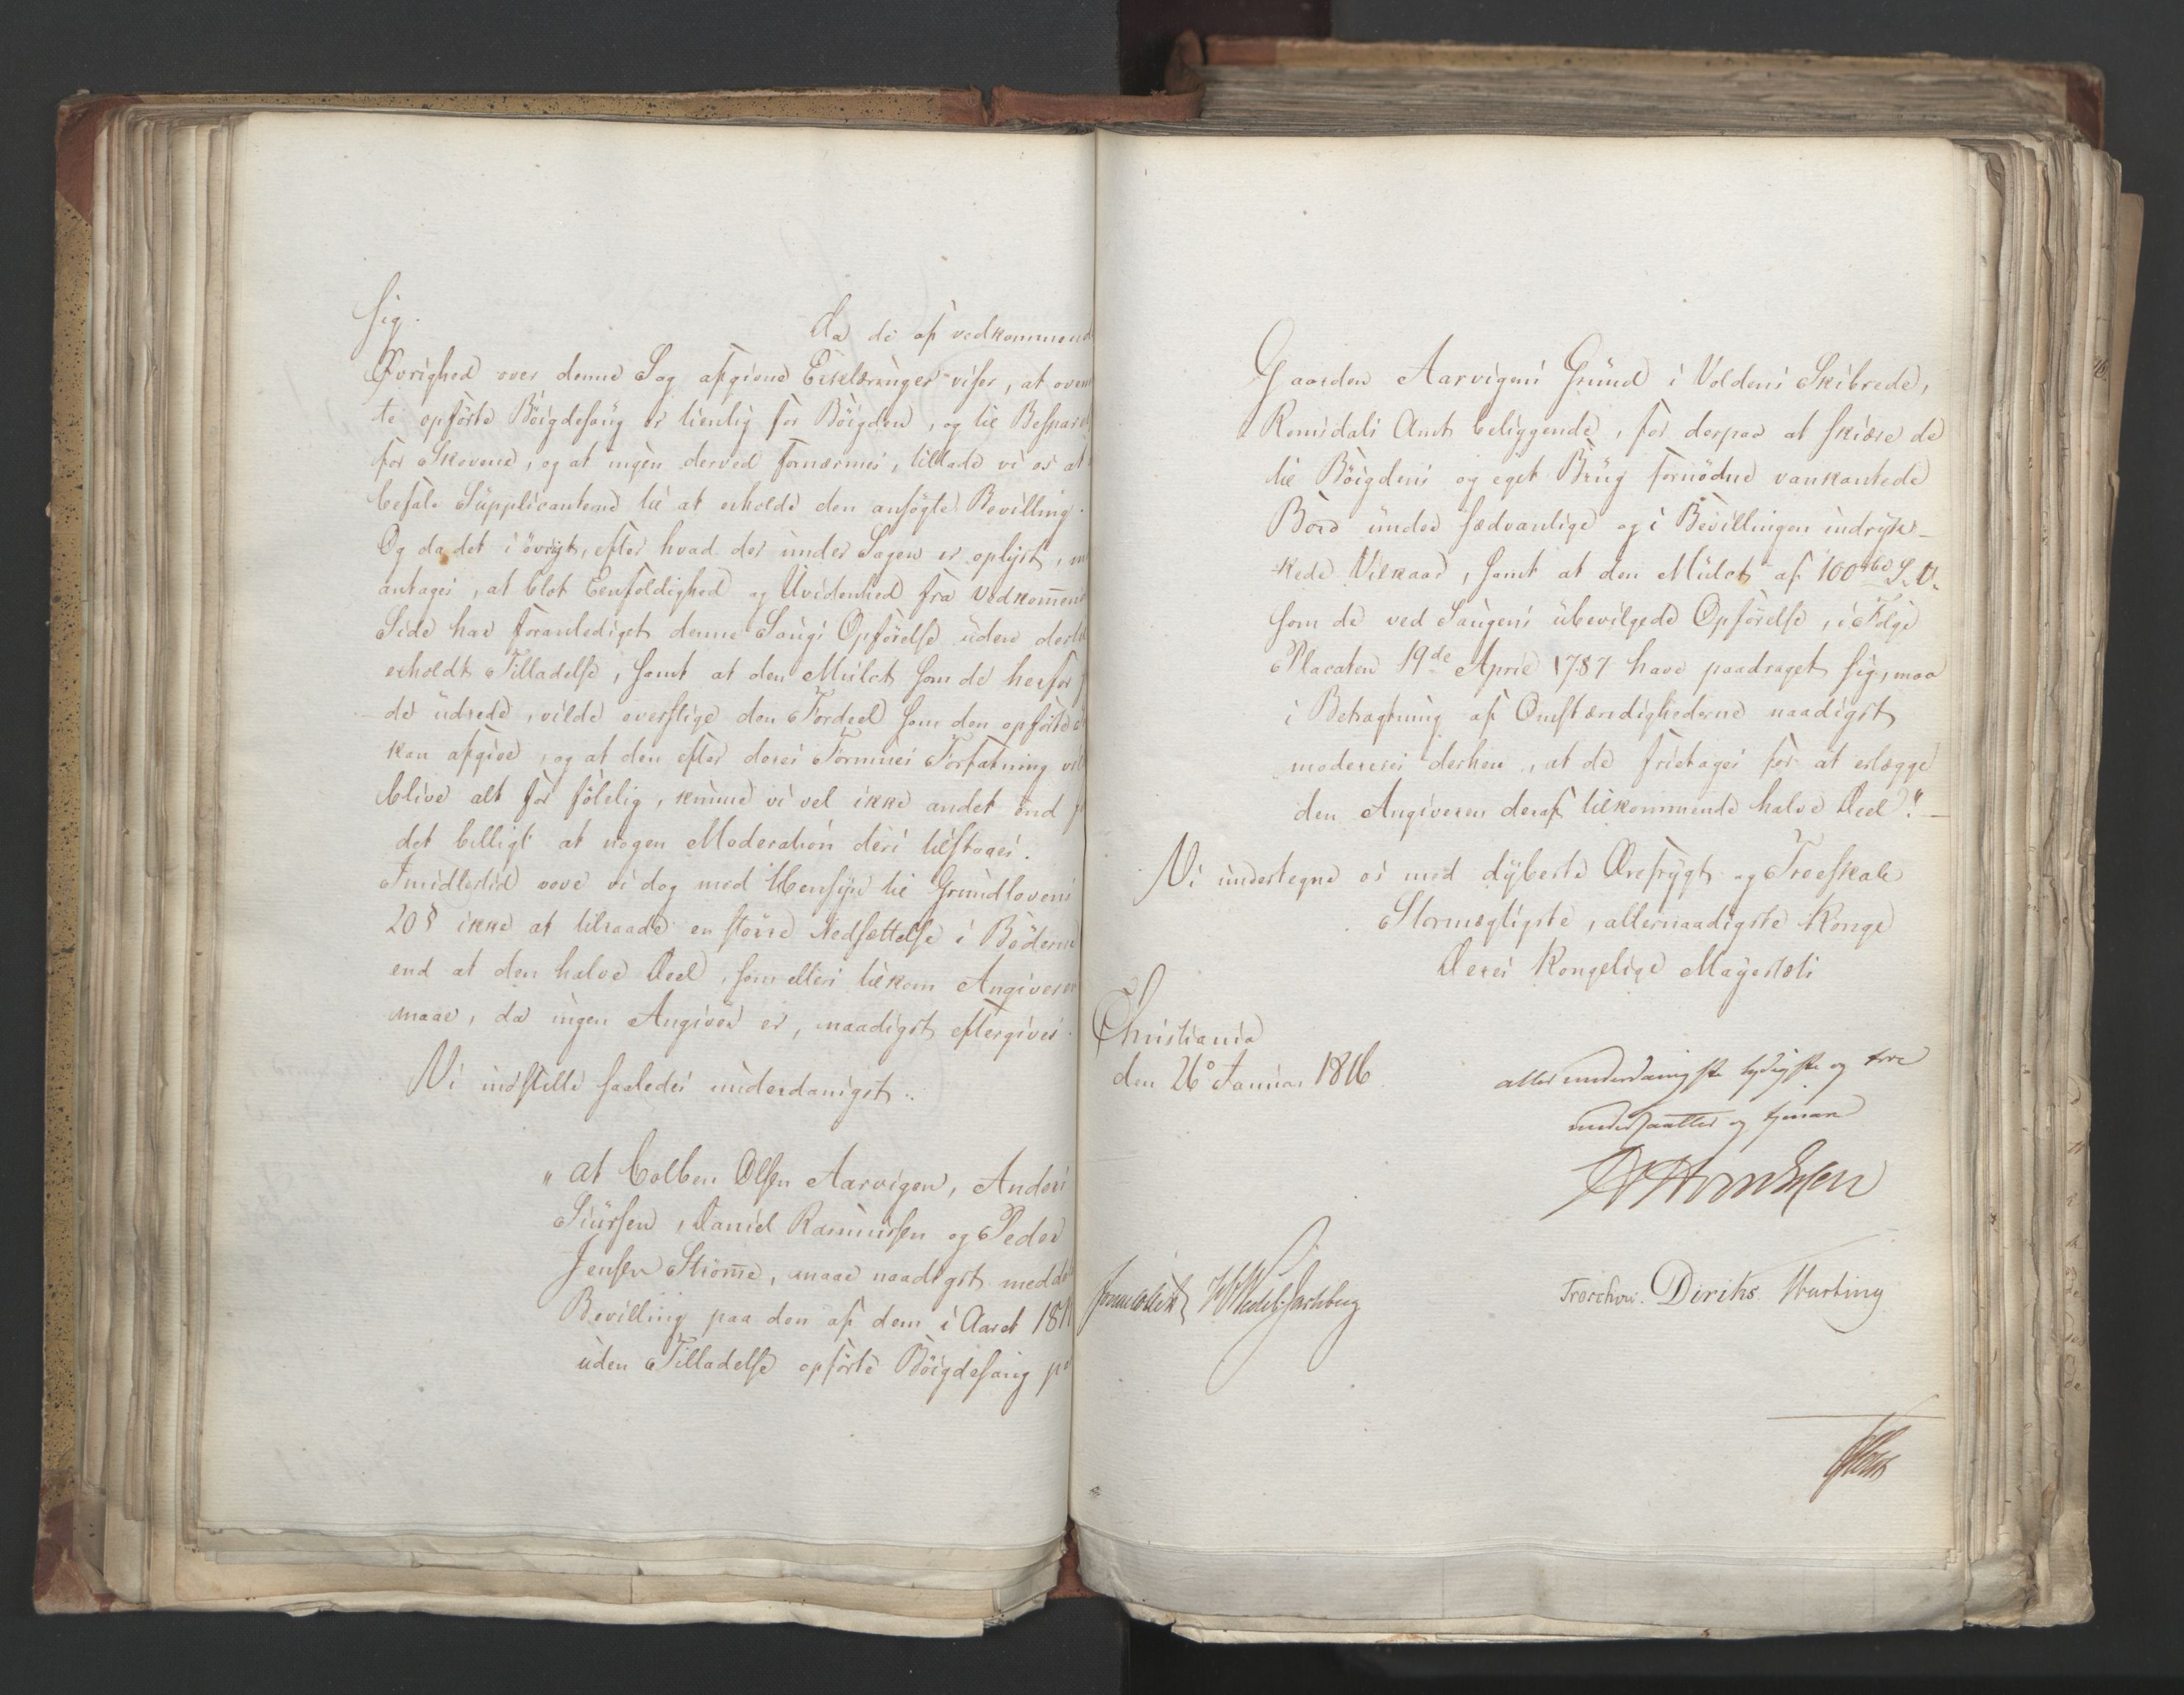 sig.
Da de af vedkommend
Øvrighed over denne Sag afgivne Erklæringer viser, at oven
te opførte Bøigdesaug er tienlig for Bøigden, og til Bespar
for Skovene, og at ingen derved fornærmes, tillade vi os at
befale Supplicanterne til at erholde den ansøgte Bevilling.
Og da det i øvrigt, efter hvad der under Sagen er oplyst, m
antages, at blot Eenfoldighed og Uvidenhed fra Vedkom̄en
Side har foranlediget denne Saugs Opførelse uden dertil
erholdt Tilladelse, samt at den Mulct som de herfor
de udrede, vilde overstige den Fordeel som den opførte
kan afgive, og at den efter deres Formues Forfatning vil
blive alt for følelig, kunne vi vel ikke andet end
det billigt at nogen Moderation deri tilstaaes.
Imidlertid vove vi dog med Hensyn til Grundlovens
20 § ikke at tilraade en større Nedsættelse i Bøderne
end at den halve Deel, som ellers tilkom Angiveren
maae, da ingen Angiver er, naadigst eftergives.
Vi indstille saaledes underdanigst:
"at Colben Olsen Aarvigen, Anders
Siursen, Daniel Rasmussen og Peder
Jensen Strøm̄e, maae naadigst medde
Bevilling paa den af dem i Aaret 1811
uden Tilladelse opførte Bøigdesaug p
Gaarden Aarvigens Grund i Voldens Skibrede,
Romsdals Amt beliggende, for derpaa at skiære de
til Bøigdens og eget Brug fornødne vankantede
Bord under sædvanlige og i Bevillingen indryk-
kede Vilkaar, samt at den Mulct af 100 rbd S.V.
som de ved Saugens ubevilgede Opførelse, i Følge
Placaten 19de April 1787 have paadraget sig, maa
i Betragtning af Omstændighederne naadigst
modereres derhen, at de fritages for at erlægge
den Angiveren deraf tilkommende halve Deel."
Vi undertegne os med dybeste Ærefrygt og Troeskab
Stormægtigste, allernaadigste Konge
Deres Kongelige Mayestæts
Christiania
den 26o Januar 1816.
allerunderdanigste lydigste og troe
undersaatter og tjenere
Sommerhielm HWedel-Jarlsberg
Treschow. Diriks. Motzfeldt